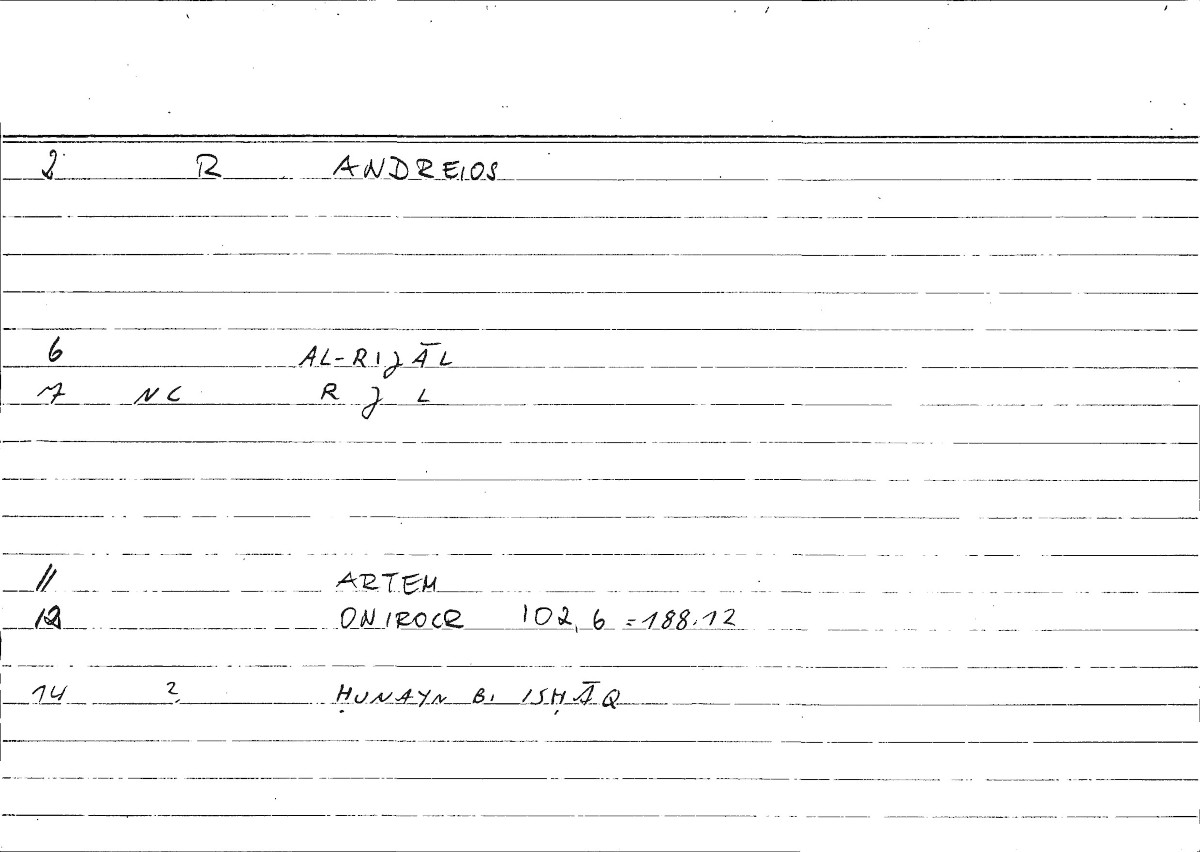 2 R ANDREIOS
6 AL-RIJĀL
7 NC R J L
11 ARTEM
12 ONIROCR 102,6 = 188.12
14 ? ḤUNAYN B. ISḤĀQ